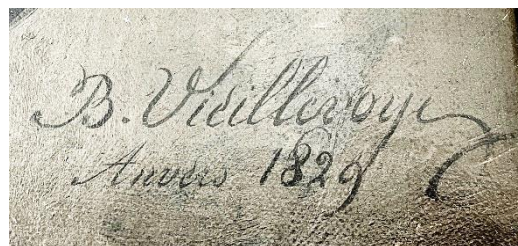 B. Vieillevoye
Anvers 1829